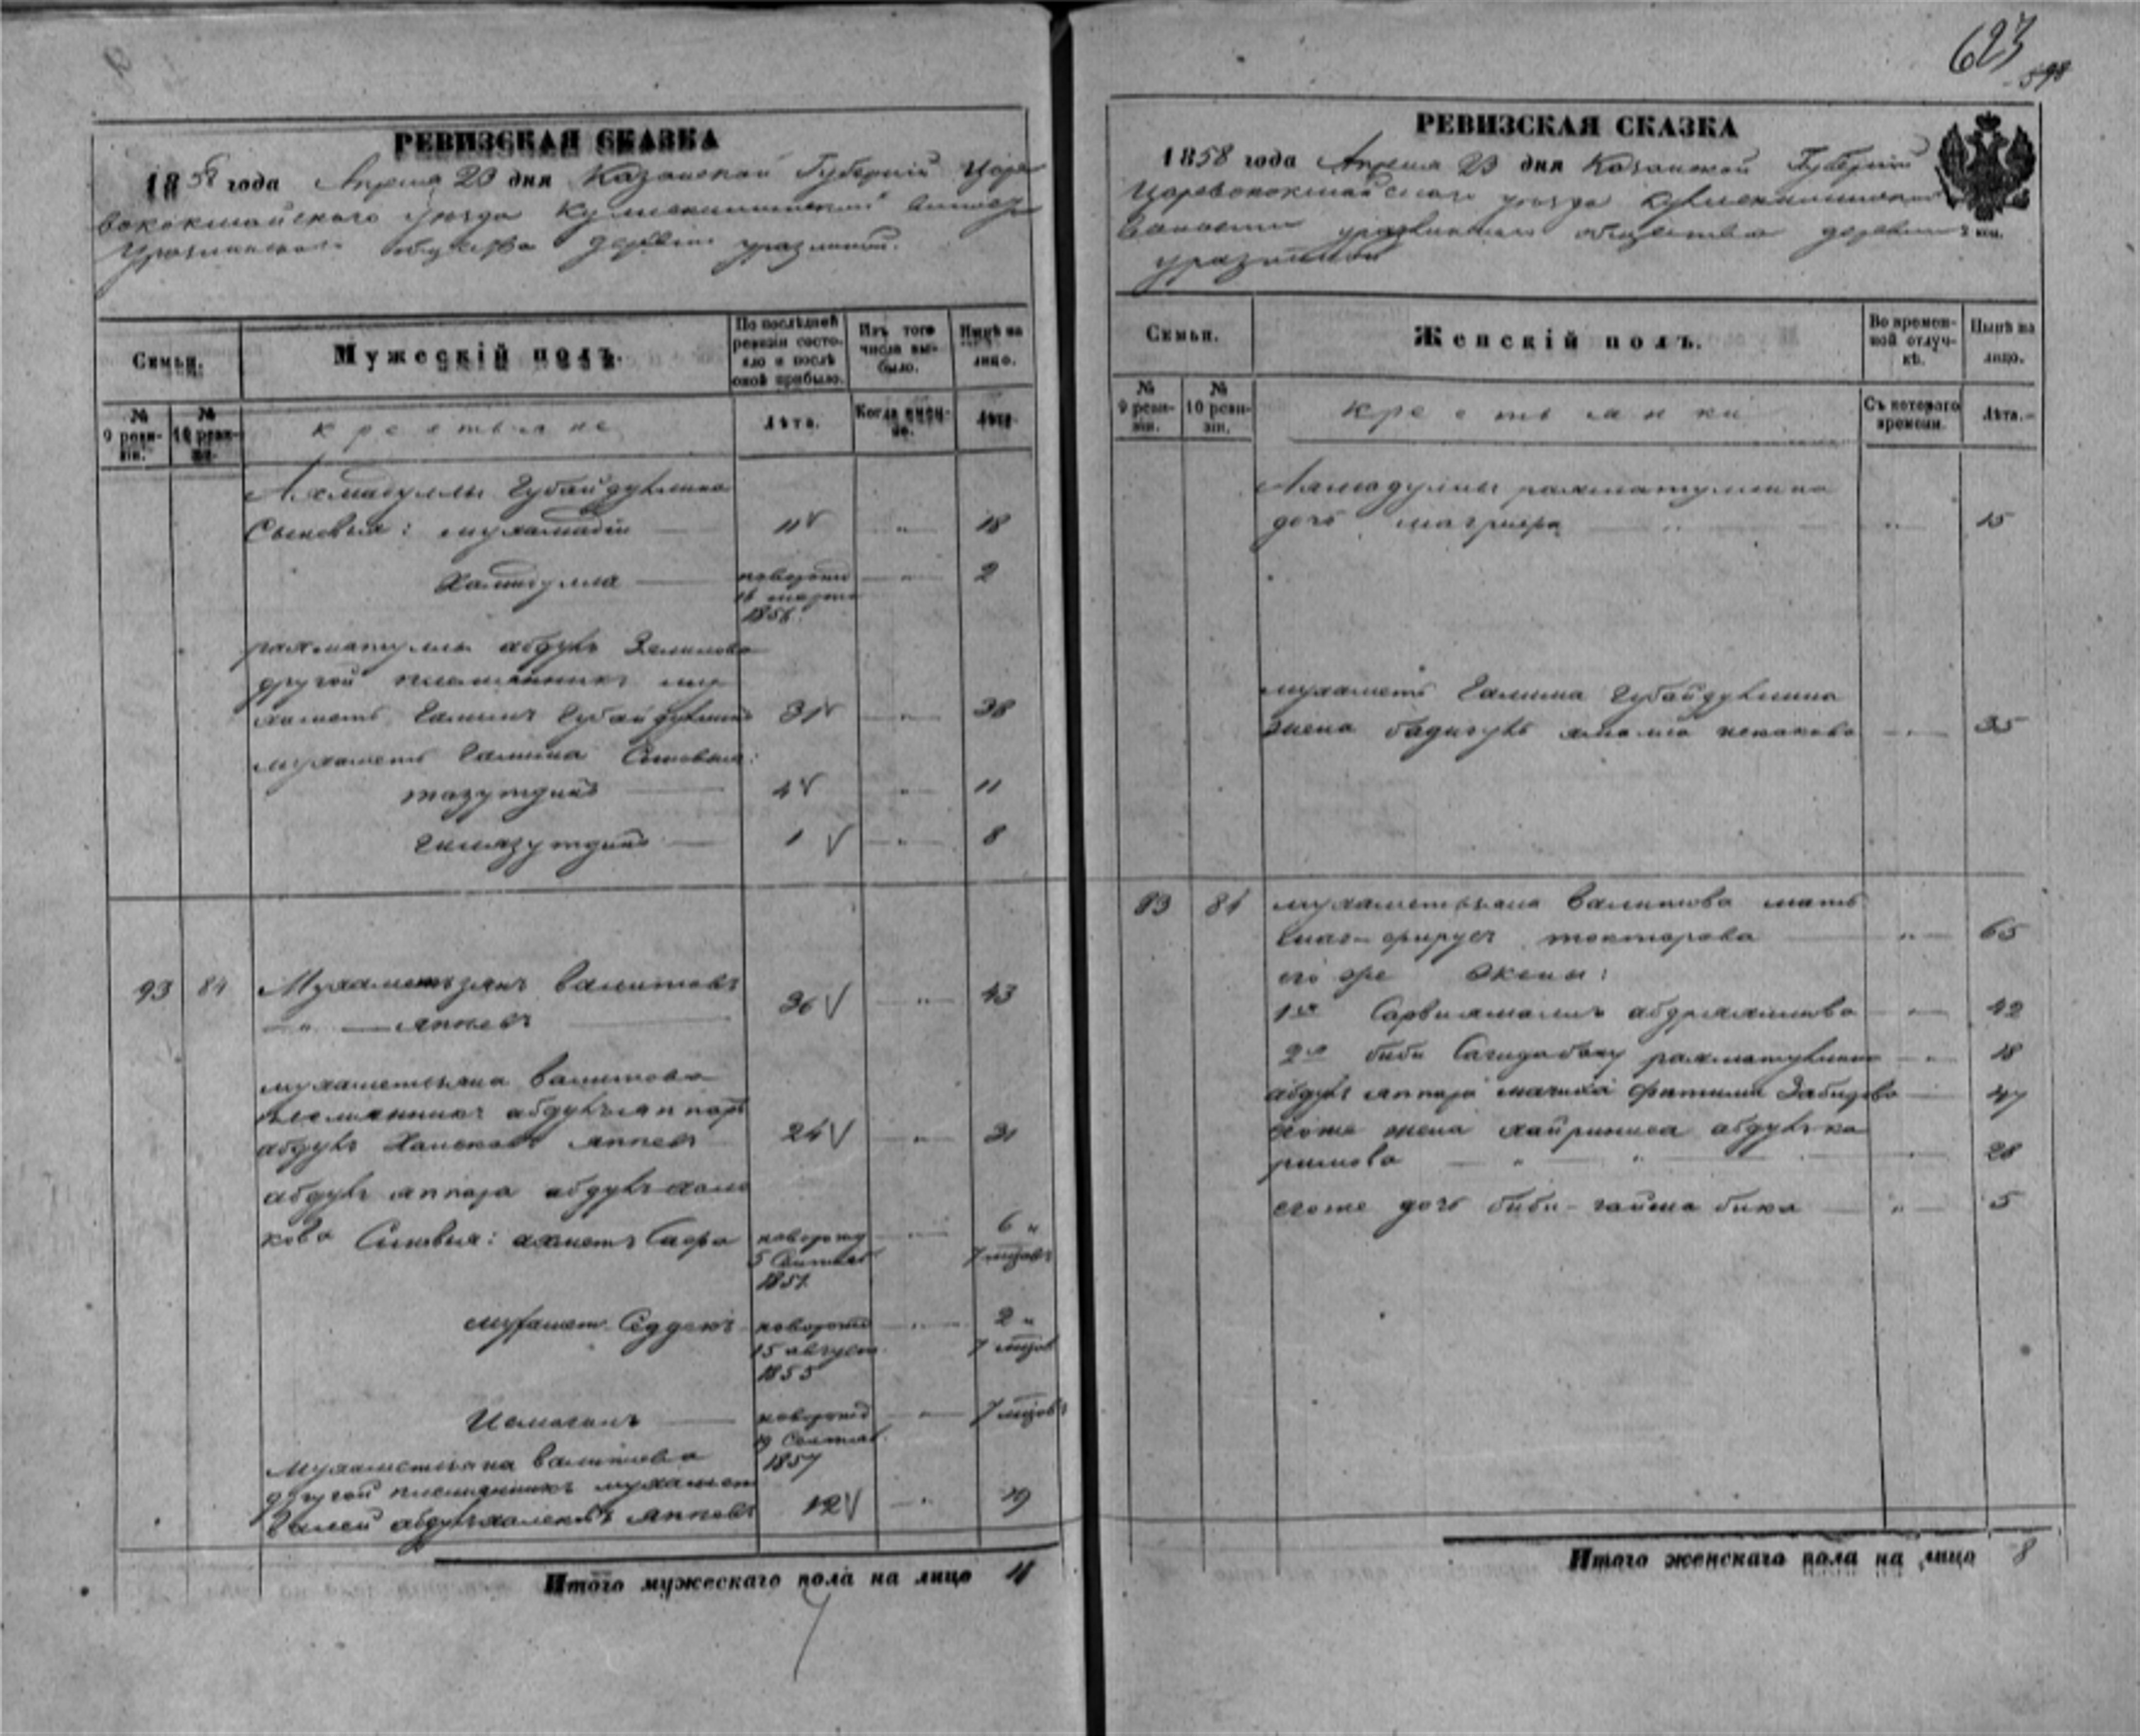 623
598
РЕВИЗСКАЯ СКАЗКА
1858 года Апреля 23 дня Казанской Губернiи Царе
вококшайского уезда Кулле-Киминской волости
Уразлинского общества деревни уразлиной.
Семьи.
Мужескiй полъ.
По послѣдней ревизiи состояло и послѣ оной прибыло.
Изъ того числа выбыло.
Нынѣ на лицо.
№ 9 ревизiи.
№ 10 ревизiи.
крестьяне
Лѣта.
Когда именно.
Лѣта.
Ахмадуллы Губайдуллина
Сыновья: мухамадiи 11 " 18
Хамидулла новорожд " 2
16 марта
1856.
рахматуллы абдулъ Зелилова
другой племянникъ му
хаметъ Галимъ Губайдуллинъ 31 " 38
мухаметъ Галима Сыновья:
тазутдинъ 4 " 11
Гилязутдинъ 1 " 8
93 84 Мухаметзянъ Валитовъ 36 " 43
" аппевъ
мухаметзяна Валитова
племянникъ абдулъзяппаръ
абдулъ Халековъ аппевъ 24 " 31
абдулъ яппара абдулъ хале
кова Сыновья: ахметъ Сафа новорожд " 6 "
5 Сентяб 7 мцовъ
1851
мухамет Седдекъ новорожд " 2 "
15 август 7 мцов
1855
Исмагилъ новорожд " 7 мцовъ
19 Сентяб
мухаметзяна Валитова 1857
другой племянникъ мухамет
Галей абдулхалековъ аппевъ 12 " 19
Итого мужескаго пола на лицо 11
РЕВИЗСКАЯ СКАЗКА
1858 года Апреля 23 дня Казанской Губернiи
Царевококшайского уезда Кулле-Киминской
Волости уразлинского общества деревни
уразлиной
2 коп.
Семьи.
Женскiй полъ.
Во временной отлучкѣ.
Нынѣ на лицо.
№ 9 ревизiи.
№ 10 ревизiи.
крестьянки
Съ котораго времени.
Лѣта.
Ахмадуллы рахматуллина
дочь магруфа " 15
мухаметъ Галима Губайдуллина
жена бадигулъ " 35
93 84 мухаметзяна Валитова мать
токтарова " 65
его же Жены:
1я абдрахимова " 42
2я биби рахматуллина " 18
абдулъ яппара мачиха фатима Забирова " 47
егоже жена хайриниса абдулъ ка
римова " 28
егоже дочь биби-гайша бика " 5
Итого женскаго пола на лицо 8